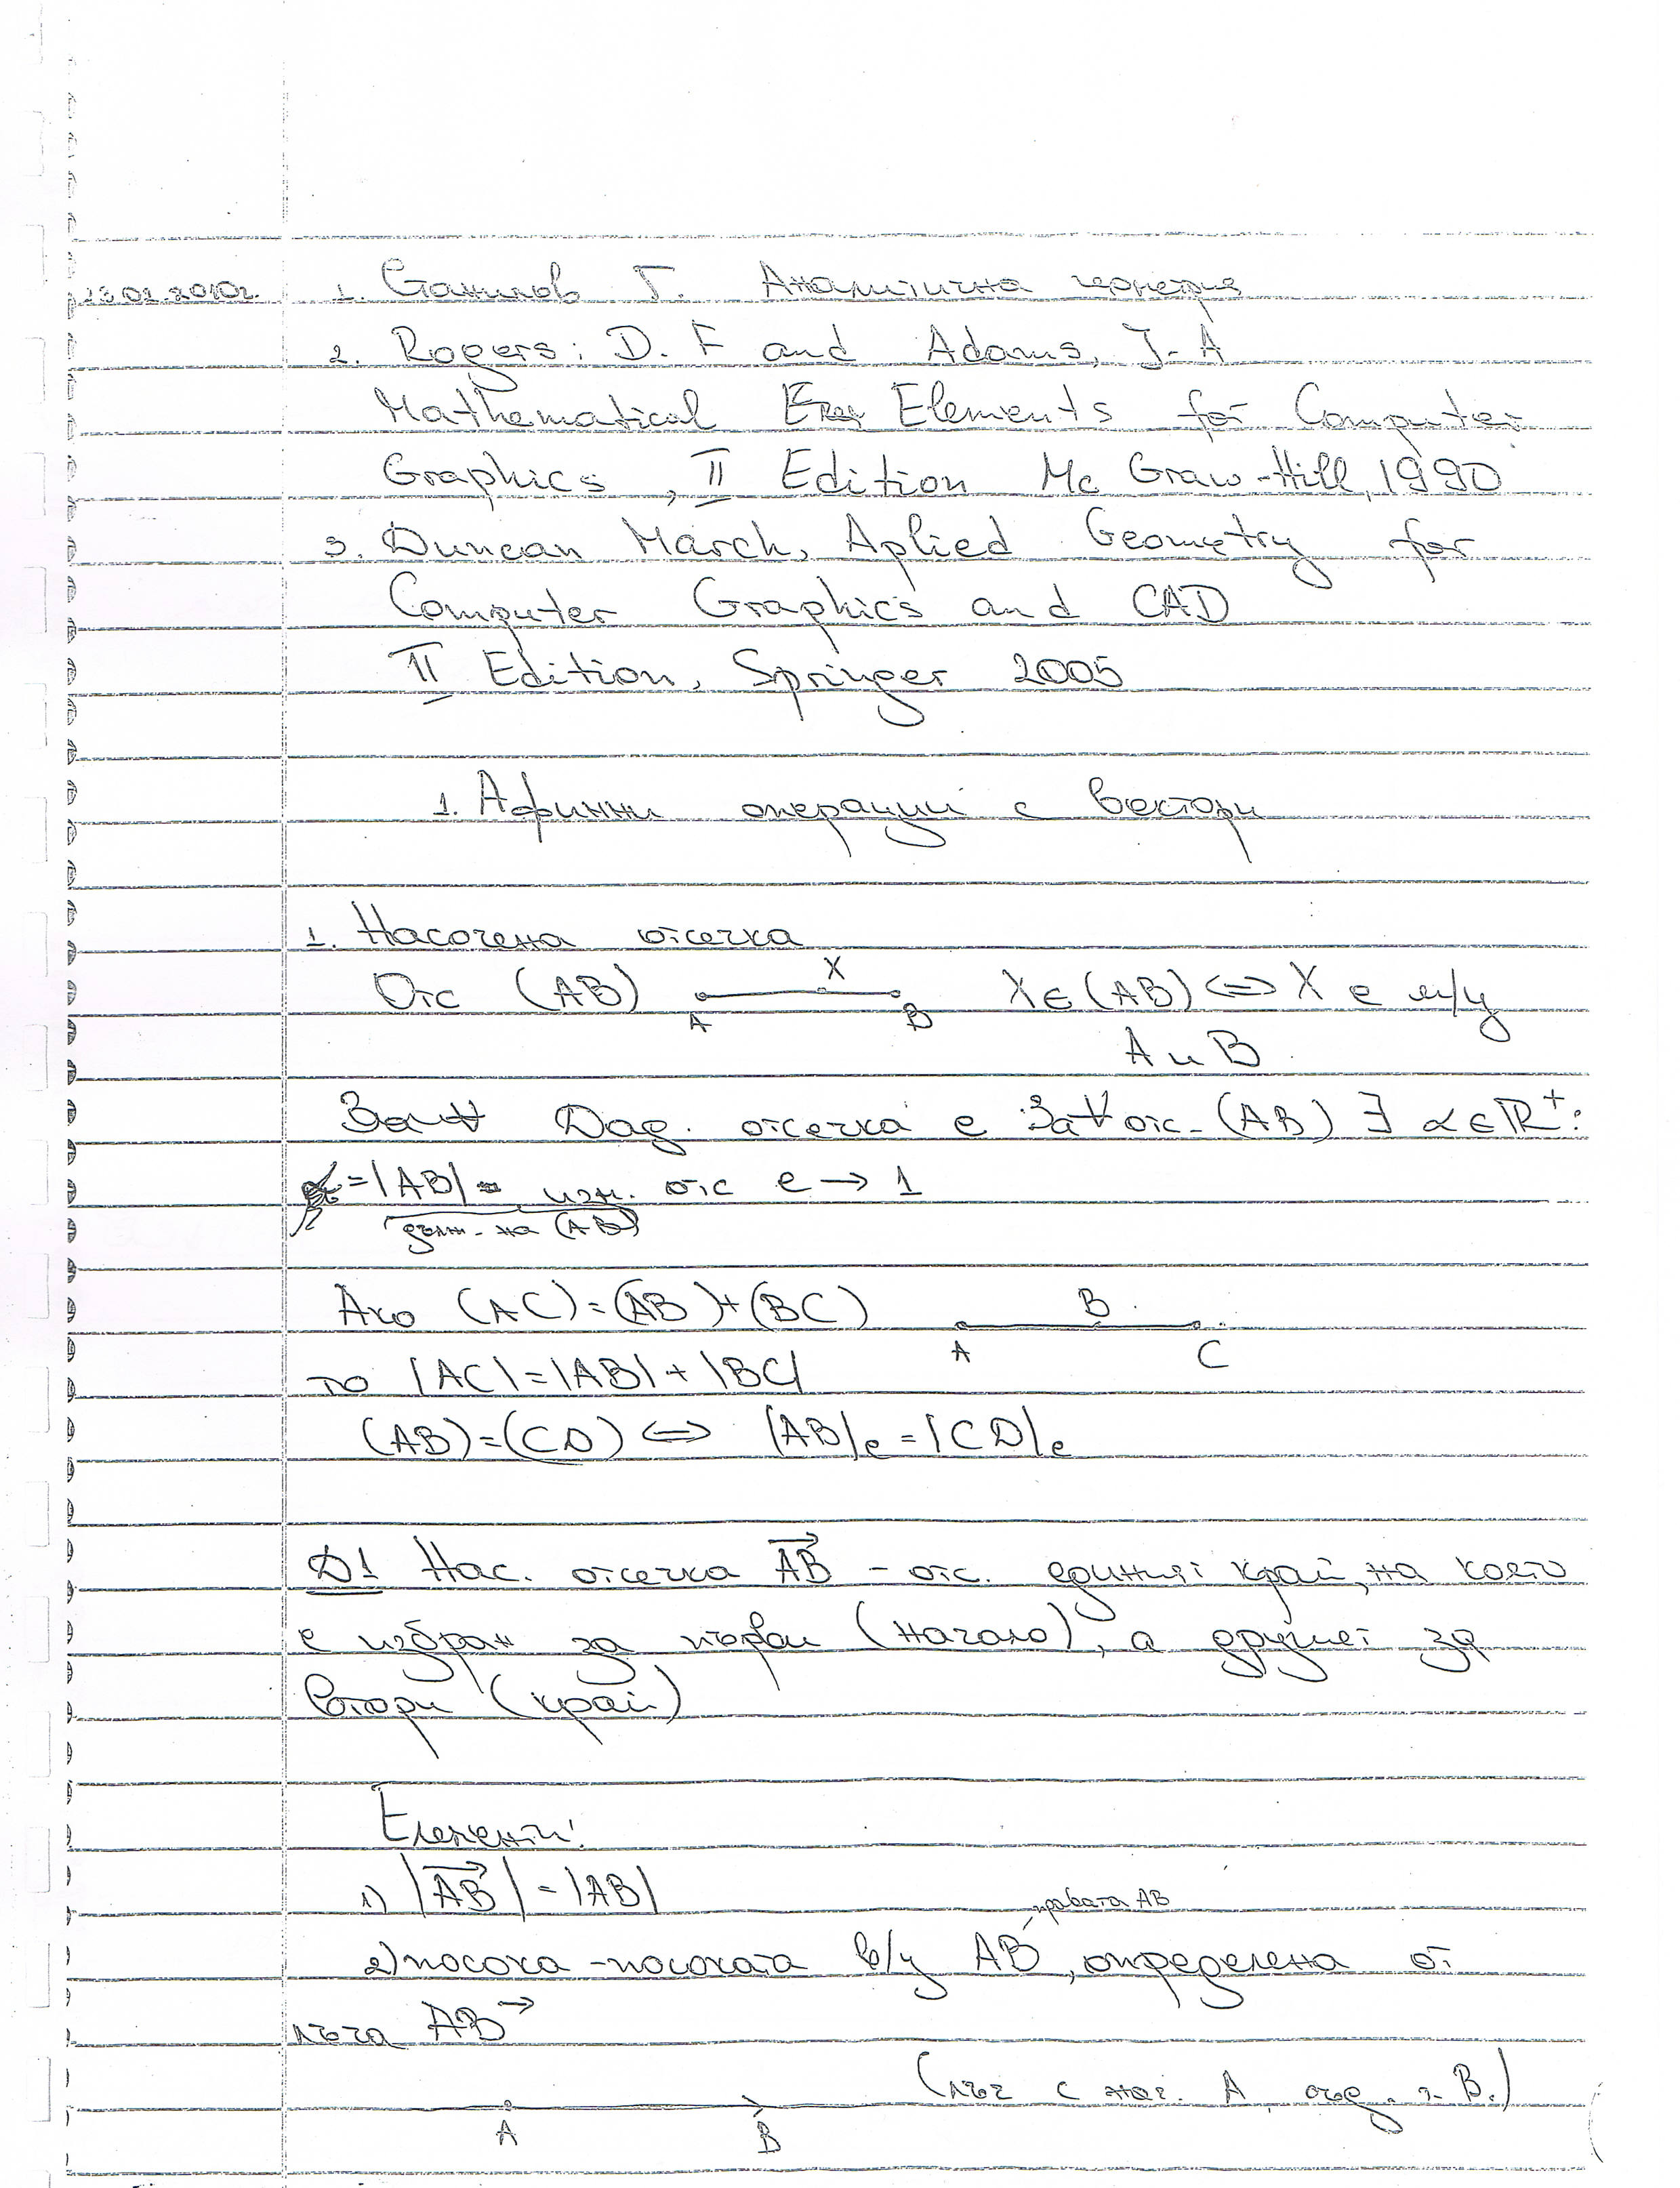 23.02.2010г.
1. Станилов Г. Аналитична геометрия
2. Rogers, D. F and Adams, J. A
Mathematical Elements for Computer
Graphics, II Edition Mc Graw-Hill, 1990
3. Duncan March, Aplied Geometry for
Computer Graphics and CAD
II Edition, Springer 2005
1. Афинни операции с вектори
1. Насочена отсечка
Отс (AB) X ∈ (AB) ⇔ X е м/у
A X B
A и B
Дад. отсечка e За ∀ отс. (AB) ∃ α ∈ ℝ⁺:
= |AB| = изм. отс e → 1
дълж. на (AB)
Ако (AC) = (AB) + (BC)
A B C
то |AC| = |AB| + |BC|
(AB) = (CD) ⇔ |AB|e = |CD|e
Д1 Нас. отсечка AB→ – отс. единият край, на която
е избран за първи (начало), а другият за
втори (край)
Елементи:
1) |AB→| = |AB|
правата AB
2) посока – посоката в/у AB, определена от
лъча AB→
(лъч с нач. A, съд. т. B.)
A B